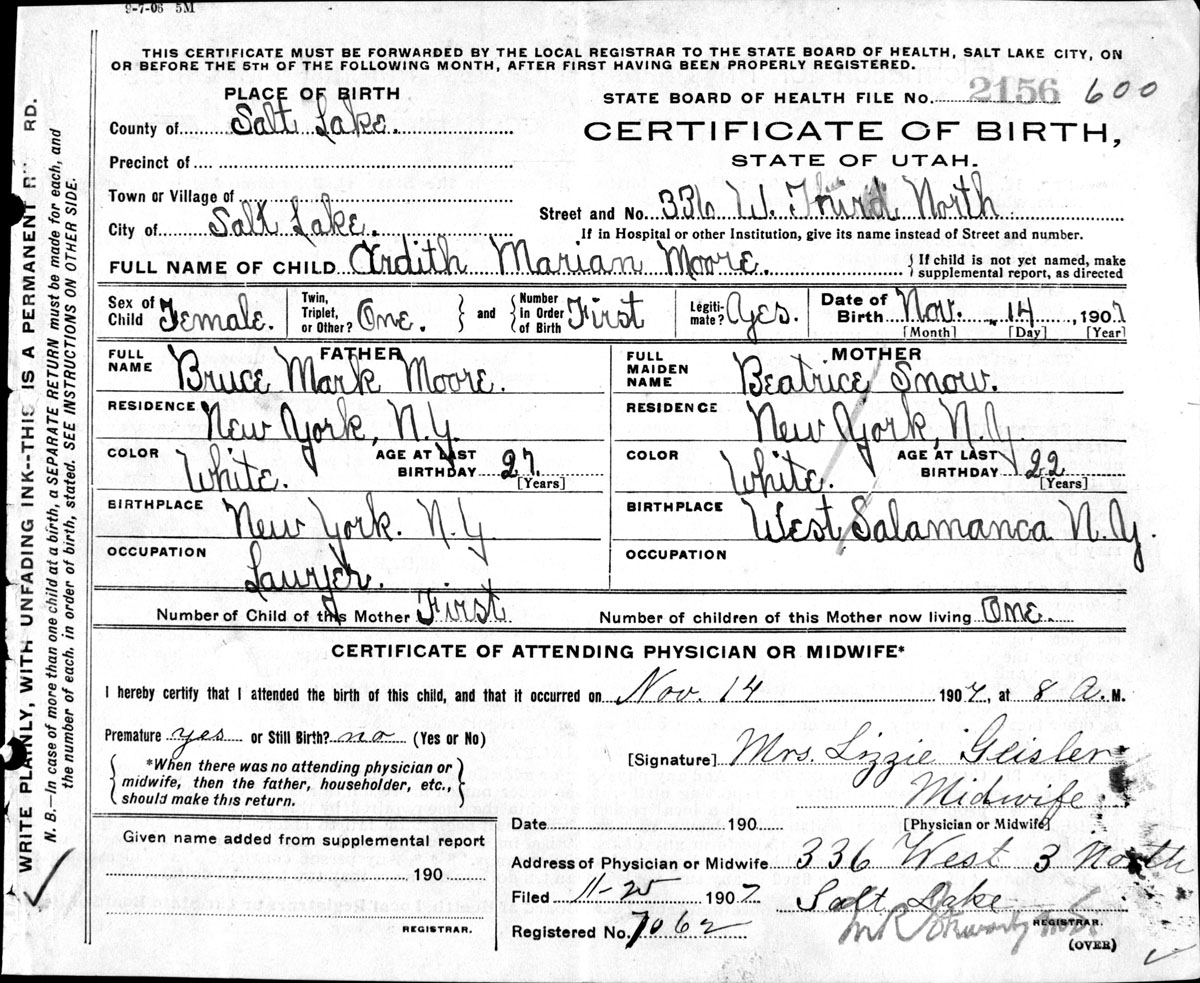 9-7-06 5M
THIS CERTIFICATE MUST BE FORWARDED BY THE LOCAL REGISTRAR TO THE STATE BOARD OF HEALTH, SALT LAKE CITY, ON
OR BEFORE THE 5TH OF THE FOLLOWING MONTH, AFTER FIRST HAVING BEEN PROPERLY REGISTERED.
PLACE OF BIRTH
County of Salt Lake.
Precinct of
Town or Village of
City of Salt Lake.
STATE BOARD OF HEALTH FILE No. 2156 600
CERTIFICATE OF BIRTH,
STATE OF UTAH.
Street and No. 336 W. Third North
If in Hospital or other Institution, give its name instead of Street and number.
FULL NAME OF CHILD Ardith Marian Moore. { If child is not yet named, make
supplemental report, as directed
Sex of Child Female. Twin, Triplet, or Other? One. } and { Number in Order of Birth First Legiti-mate? Yes. Date of Birth Nov. 14, 1907
[Month] [Day] [Year]
FATHER
FULL NAME Bruce Mark Moore.
RESIDENCE New York, N.Y.
COLOR White. AGE AT LAST BIRTHDAY 27. [Years]
BIRTHPLACE New York. N.Y.
OCCUPATION Lawyer.
MOTHER
FULL MAIDEN NAME Beatrice Snow.
RESIDENCE New York, N.Y.
COLOR White. AGE AT LAST BIRTHDAY 22 [Years]
BIRTHPLACE West Salamanca N.Y.
OCCUPATION
Number of Child of this Mother First Number of children of this Mother now living One.
CERTIFICATE OF ATTENDING PHYSICIAN OR MIDWIFE*
I hereby certify that I attended the birth of this child, and that it occurred on Nov. 14 1907, at 8 A. M.
Premature yes or Still Birth? no (Yes or No)
{ *When there was no attending physician or
midwife, then the father, householder, etc.,
should make this return. }
[Signature] Mrs. Lizzie Geisler
Midwife
[Physician or Midwife]
Given name added from supplemental report
190
REGISTRAR.
Date 190
Address of Physician or Midwife 336 West 3 North
Filed 11-25 1907 Salt Lake
Registered No. 7062
REGISTRAR.
(OVER)
WRITE PLAINLY, WITH UNFADING INK--THIS IS A PERMANENT R RD.
N. B.—In case of more than one child at a birth, a SEPARATE RETURN must be made for each, and
the number of each, in order of birth, stated. SEE INSTRUCTIONS ON OTHER SIDE.